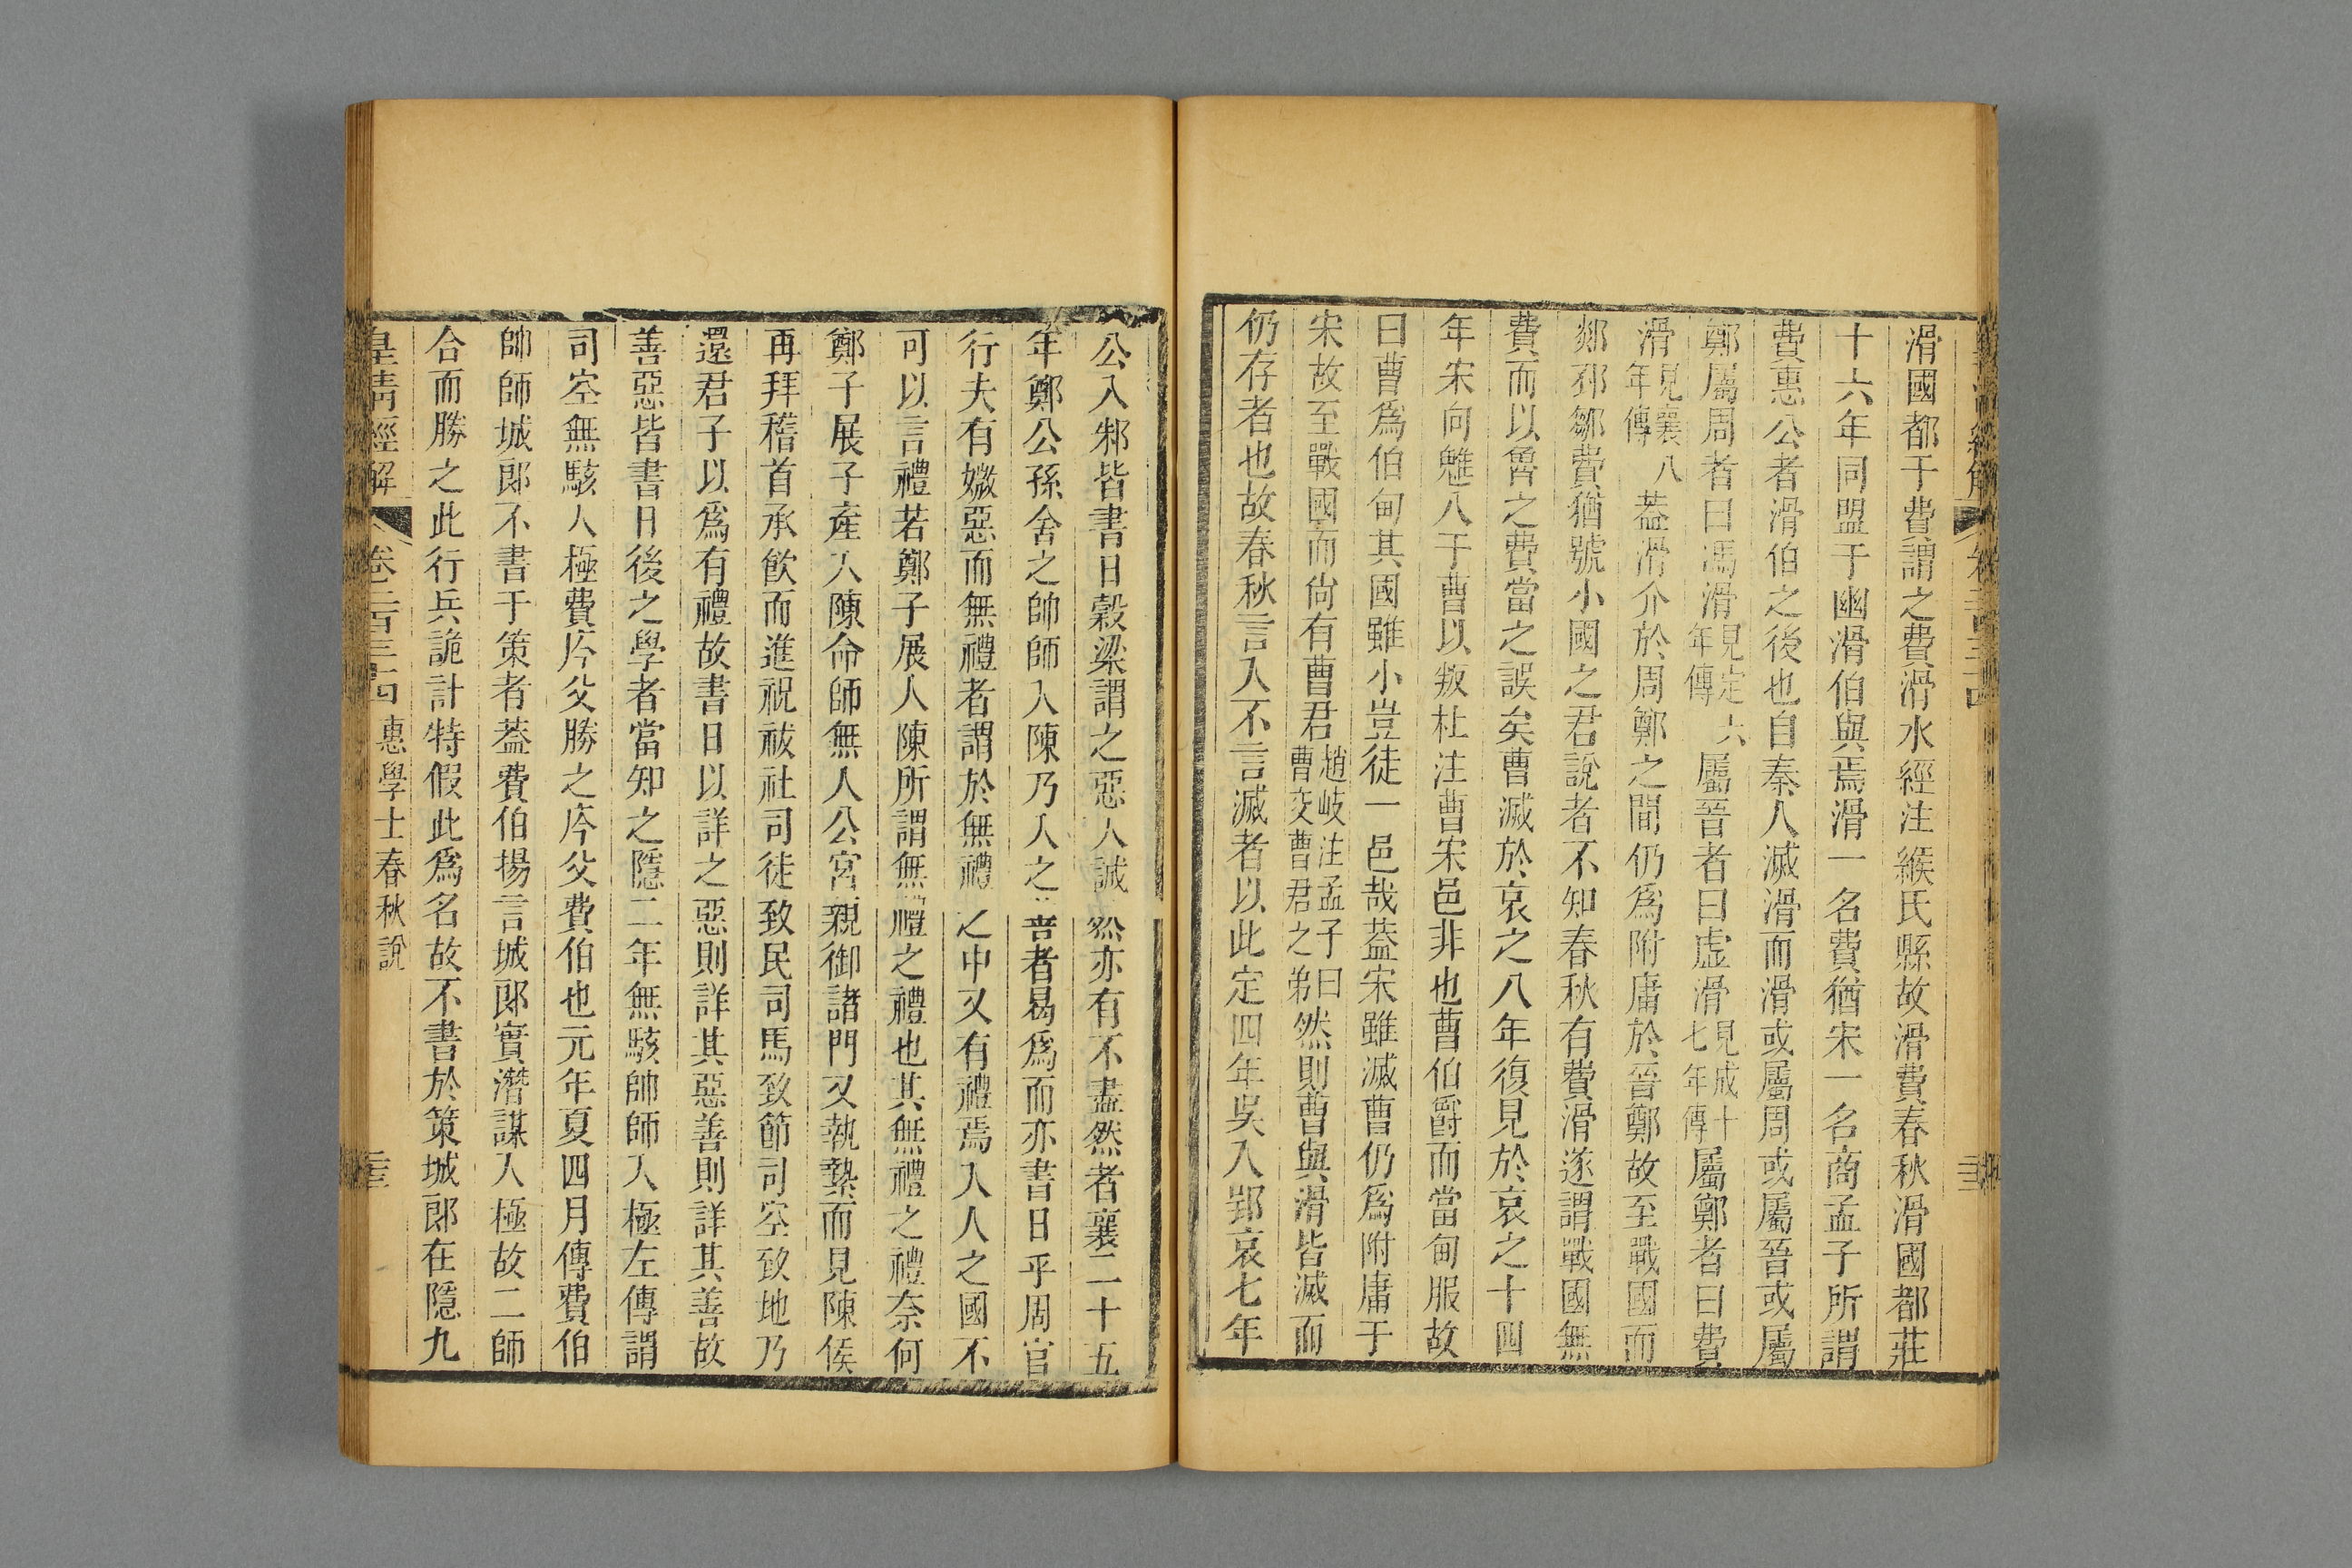 滑國都于費謂之費滑水經注緱氏縣故滑費春秋滑國都莊
十六年同盟于幽滑伯與焉滑一名費猶宋一名商孟子所謂
費惠公者滑伯之後也自秦人滅滑而滑或屬周或屬晉或屬
鄭屬周者曰馮滑見定六年傳屬晉者曰虛滑見成十七年傳屬鄭者曰費
滑見襄八年傳蓋滑介於周鄭之間仍爲附庸於晉鄭故至戰國而
郯邳鄒費猶號小國之君說者不知春秋有費滑遂謂戰國無
費而以魯之費當之誤矣曹滅於哀之八年復見於哀之十四
年宋向魋入于曹以叛杜注曹宋邑非也曹伯爵而當甸服故
曰曹爲伯甸其國雖小豈徒一邑哉蓋宋雖滅曹仍爲附庸于
宋故至戰國而尙有曹君趙岐注孟子曰曹交曹君之弟然則曹與滑皆滅而
仍存者也故春秋言入不言滅者以此定四年吳入郢哀七年
公入邾皆書日穀梁謂之惡入誠然亦有不盡然者襄二十五
年鄭公孫舍之帥師入陳乃入之善者曷爲而亦書日乎周官
行夫有媺惡而無禮者謂於無禮之中又有禮焉入人之國不
可以言禮若鄭子展入陳所謂無禮之禮也其無禮之禮奈何
鄭子展子產入陳命師無入公宮親御諸門又執縶而見陳侯
再拜稽首承飲而進祝祓社司徒致民司馬致節司空致地乃
還君子以爲有禮故書日以詳之惡則詳其惡善則詳其善故
善惡皆書日後之學者當知之隱二年無駭帥師入極左傳謂
司空無駭入極費庈父勝之庈父費伯也元年夏四月傳費伯
帥師城郎不書于策者蓋費伯揚言城郎實潛謀入極故二師
合而勝之此行兵詭計特假此爲名故不書於策城郎在隱九
皇淸經解 卷二百三十四 惠學士春秋說 三